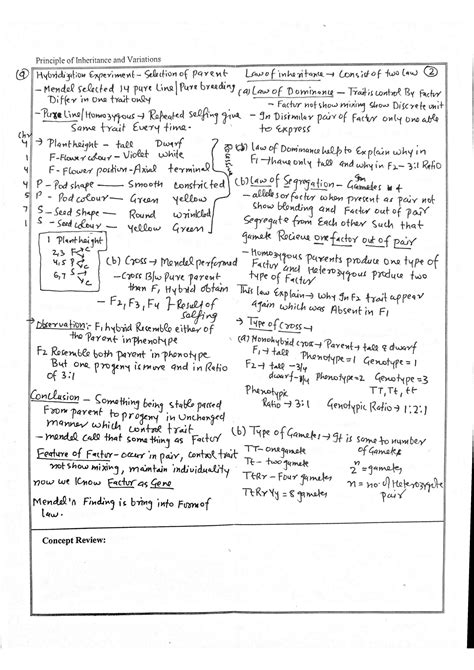 Principle of Inheritance and Variations
(a) Hybridization Experiment - Selection of Parent
- Mendel selected 14 pure Line/Pure breeding
Differ in one trait only
- Pure Line/Homozygous → Repeated selfing give
Same trait Every time.
Chr
4 → Plant height - tall Dwarf
1 F - Flower colour - Violet white
4 F - Flower position - Axial terminal
4 P - Pod shape — Smooth constricted
5 P - Pod colour — Green yellow
7 S - Seed shape — Round wrinkled
1 S - Seed colour — yellow Green
1 Plant height
2,3 F
4,5 P
6,7 S
(b) Cross → Mendel performed
- Cross B/w Pure parent
then F1 Hybrid obtain
- F2, F3, F4 Result of
selfing
→ Observation:- F1 hybrid Resemble either of
the Parent in phenotype
F2 Resemble both parent in phenotype
But one progeny is move and in Ratio
of 3:1
Conclusion - Something being stable passed
From parent to progeny in Unchanged
manner which control trait
- mendel call that something as Factor
Feature of Factor - occur in pair, control trait
not show mixing, maintain individuality
now we Know Factor as Gene
Mendel's Finding is bring into Form of
law.
Law of inheritance → Consist of two law (2)
(a) Law of Dominance - Trait is control By Factor
- Factor not show mixing show Discrete unit
- In Dissimilar pair of Factor only one able
to Express
Law of Dominance help to Explain why in
F1 - have only tall and why in F2 - 3:1 Ratio
(b) Law of Segregation - In Gametes
- alleles or factor when present as pair not
show blending and Factor out of pair
Segregate from Each other Such that
gamete Recieve one factor out of pair
- Homozygous parents produce one type of
Factor and Heterozygous produce two
type of Factor
This law Explain → why In F2 trait appear
again which was Absent in F1
→ Type of Cross →
(a) Monohybrid cross → Parent → tall & dwarf
F1 → tall Phenotype = 1 Genotype = 1
F2 → tall - 3/4
dwarf - 1/4 Phenotype = 2 Genotype = 3
TT, Tt, tt
Phenotypic
Ratio → 3:1 Genotypic Ratio → 1:2:1
(b) Type of Gametes → It is some to number
of Gamete
TT - one gamete
Tt - two gamete
TtRr - Four gametes
TtRrYy = 8 gametes
2^n = gametes
n = no. of Heterozygote
pair
Concept Review: